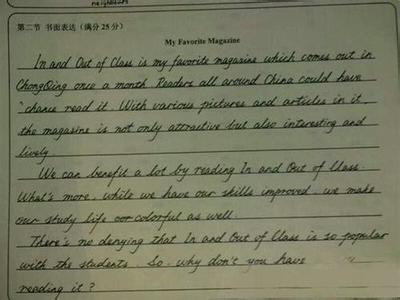 neighbours
第二节 书面表达（满分 25 分）
My Favorite Magazine
In and Out of Class is my favorite magazine which comes out in
ChongQing once a month. Readers all around China could have
chance read it. With various pictures and articles in it,
the magazine is not only attractive but also interesting and
lively
We can benefit a lot by reading In and Out of Class.
What's more, while we have our skills improved, we make
our study life colorful as well.
There's no denying that In and Out of Class is so popular
with the students. So, why don't you have
reading it?